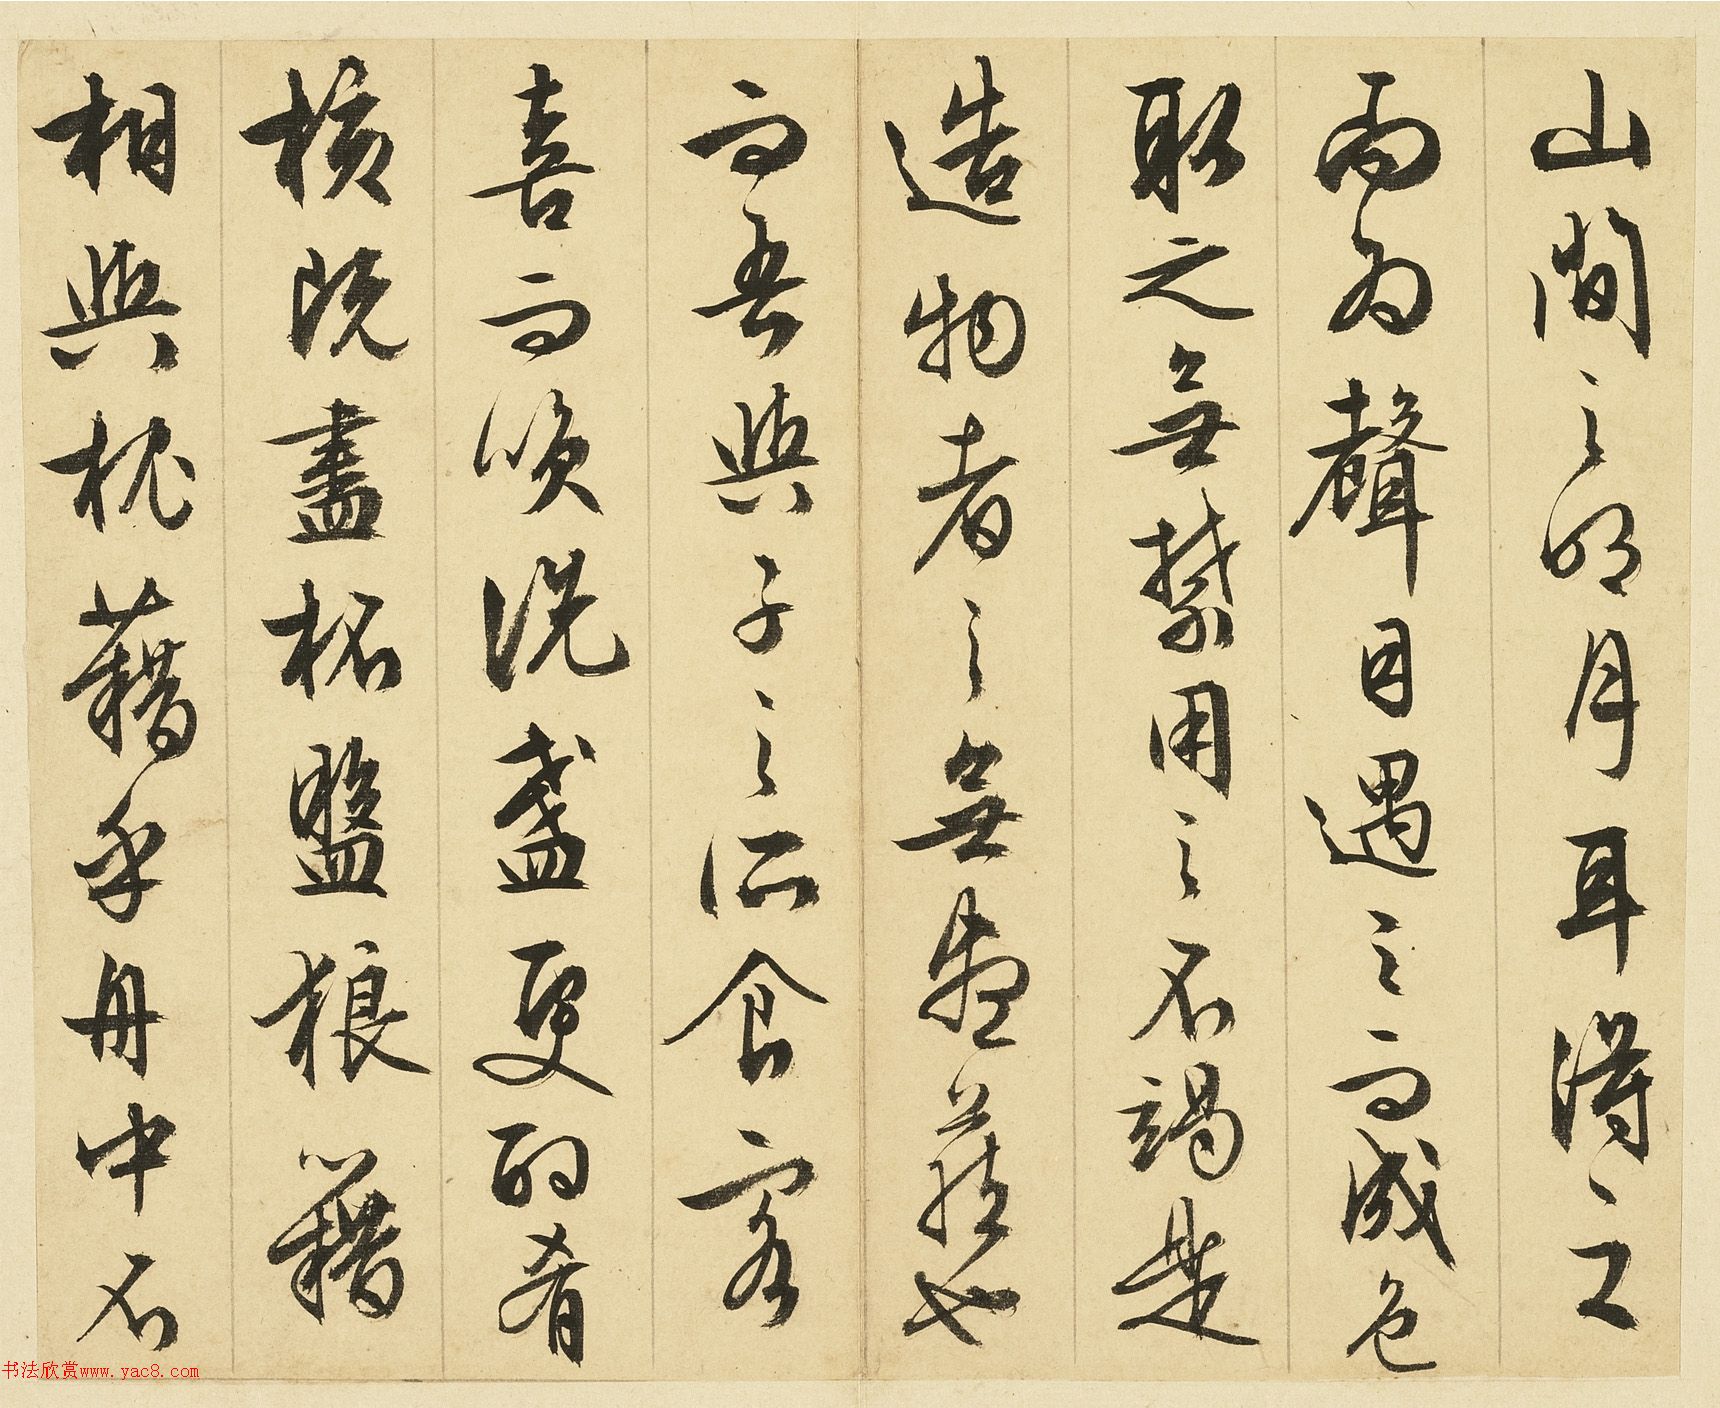 山間之明月耳得之
而為聲目遇之而成色
取之無禁用之不竭是
造物者之無盡藏也
而吾與子之所食客
喜而笑洗盞更酌肴
核既盡杯盤狼籍
相與枕藉乎舟中不
书法欣赏www.yac8.com